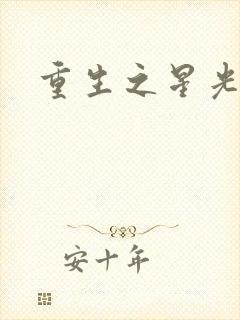 重生之星光
安十年